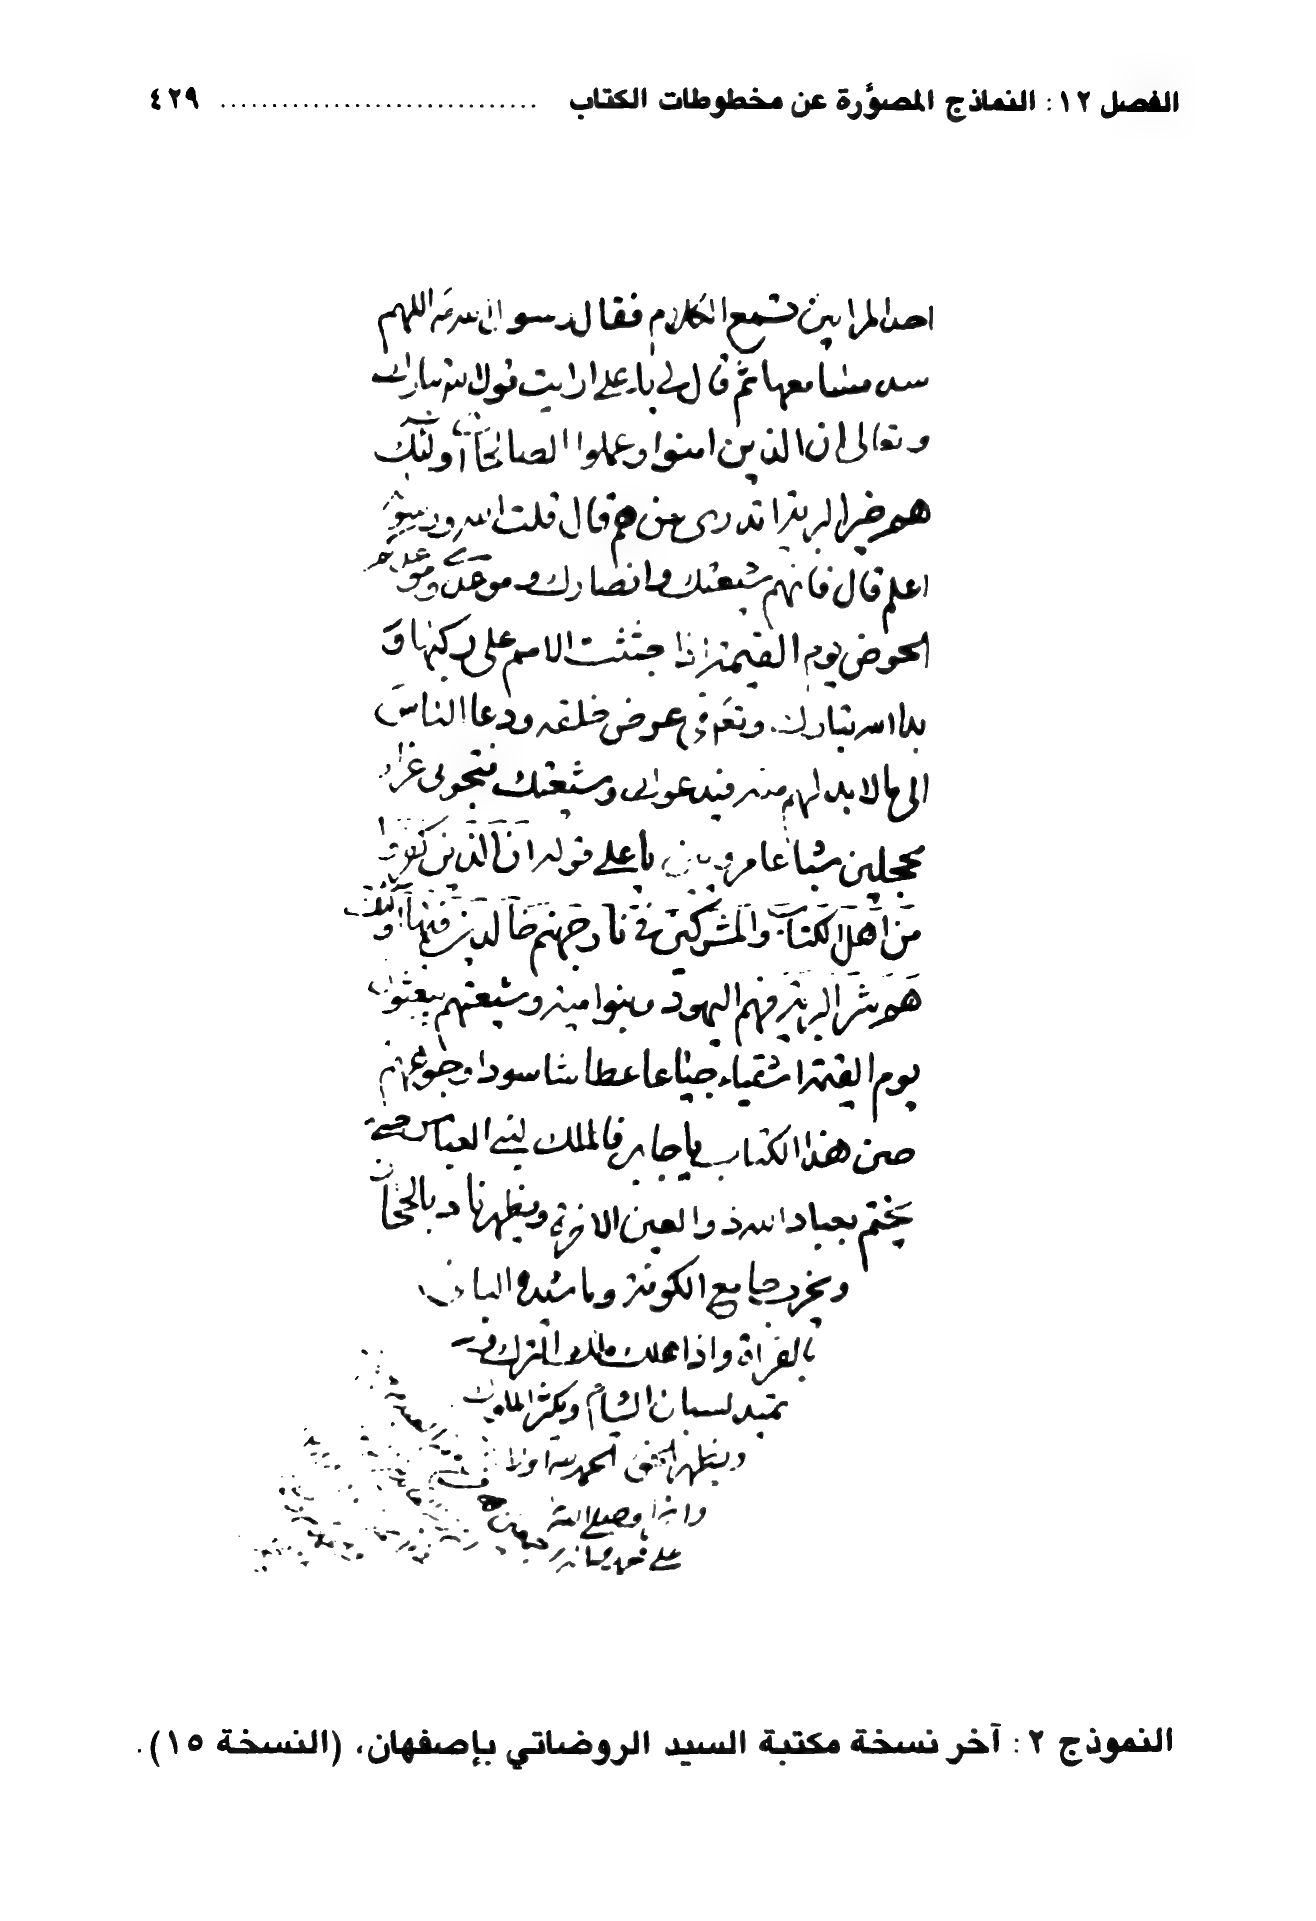 الفصل ١٢: النماذج المصوَّرة عن مخطوطات الكتاب ............................... ٤٢٩
تسمع الكلام فقال رسول الله اللهم
سد مسامعها ثم قال لي يا علي ارايت قول الله تبارك
وتعالى ان الذين امنوا وعملوا الصالحات أولئك
هم خير البرية اتدرى من هم قال قلت الله ورسوله
اعلم قال فانهم شيعتك وانصارك وموعدى وموعدهم
الحوض يوم القيمة اذا جثت الامم على ركبها و
بدا لله تبارك وتعالى في عرض خلقه ودعا الناس
الى ما لا بد لهم منه فيدعوك وشيعتك فتجوني غرا
محجلين شباعا مرويين يا علي قوله ان الذين كفروا
من اهل الكتاب والمشركين في نار جهنم خالدين فيها أولئك
هم شر البرية فهم اليهود وبنوا امية وشيعتهم يبعثون
يوم القيمة اشقياء جياعا عطاشا مسودا وجوههم
هذا الكتاب يا جابر فالملك لبني العباس حتى
يختم بعباد الله ذو العين الاخرة ويظهر نار بالحجاز
ويخرب جامع الكوفة
بالفرات واذا هلك ملك الترك
لسان الشام ويكثر الملوك
ويظهر الحمد لله اولا
واخرا وصلى الله
على محمد واله
النموذج ٢: آخر نسخة مكتبة السيد الروضاتي بإصفهان، (النسخة ١٥).